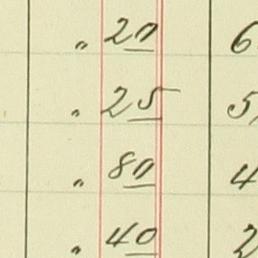 „ 20 6
„ 25 5
„ 80 4
„ 40 2